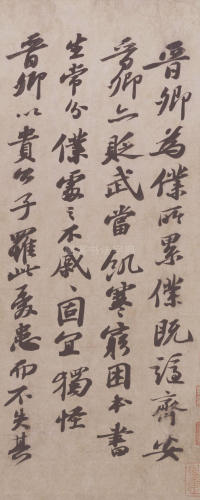 晉卿為僕所累僕既謫齊安
晉卿亦貶武當飢寒窮困本書
生常分僕處之不戚〻固宜獨怪
晉卿以貴公子罹此憂患而不失其